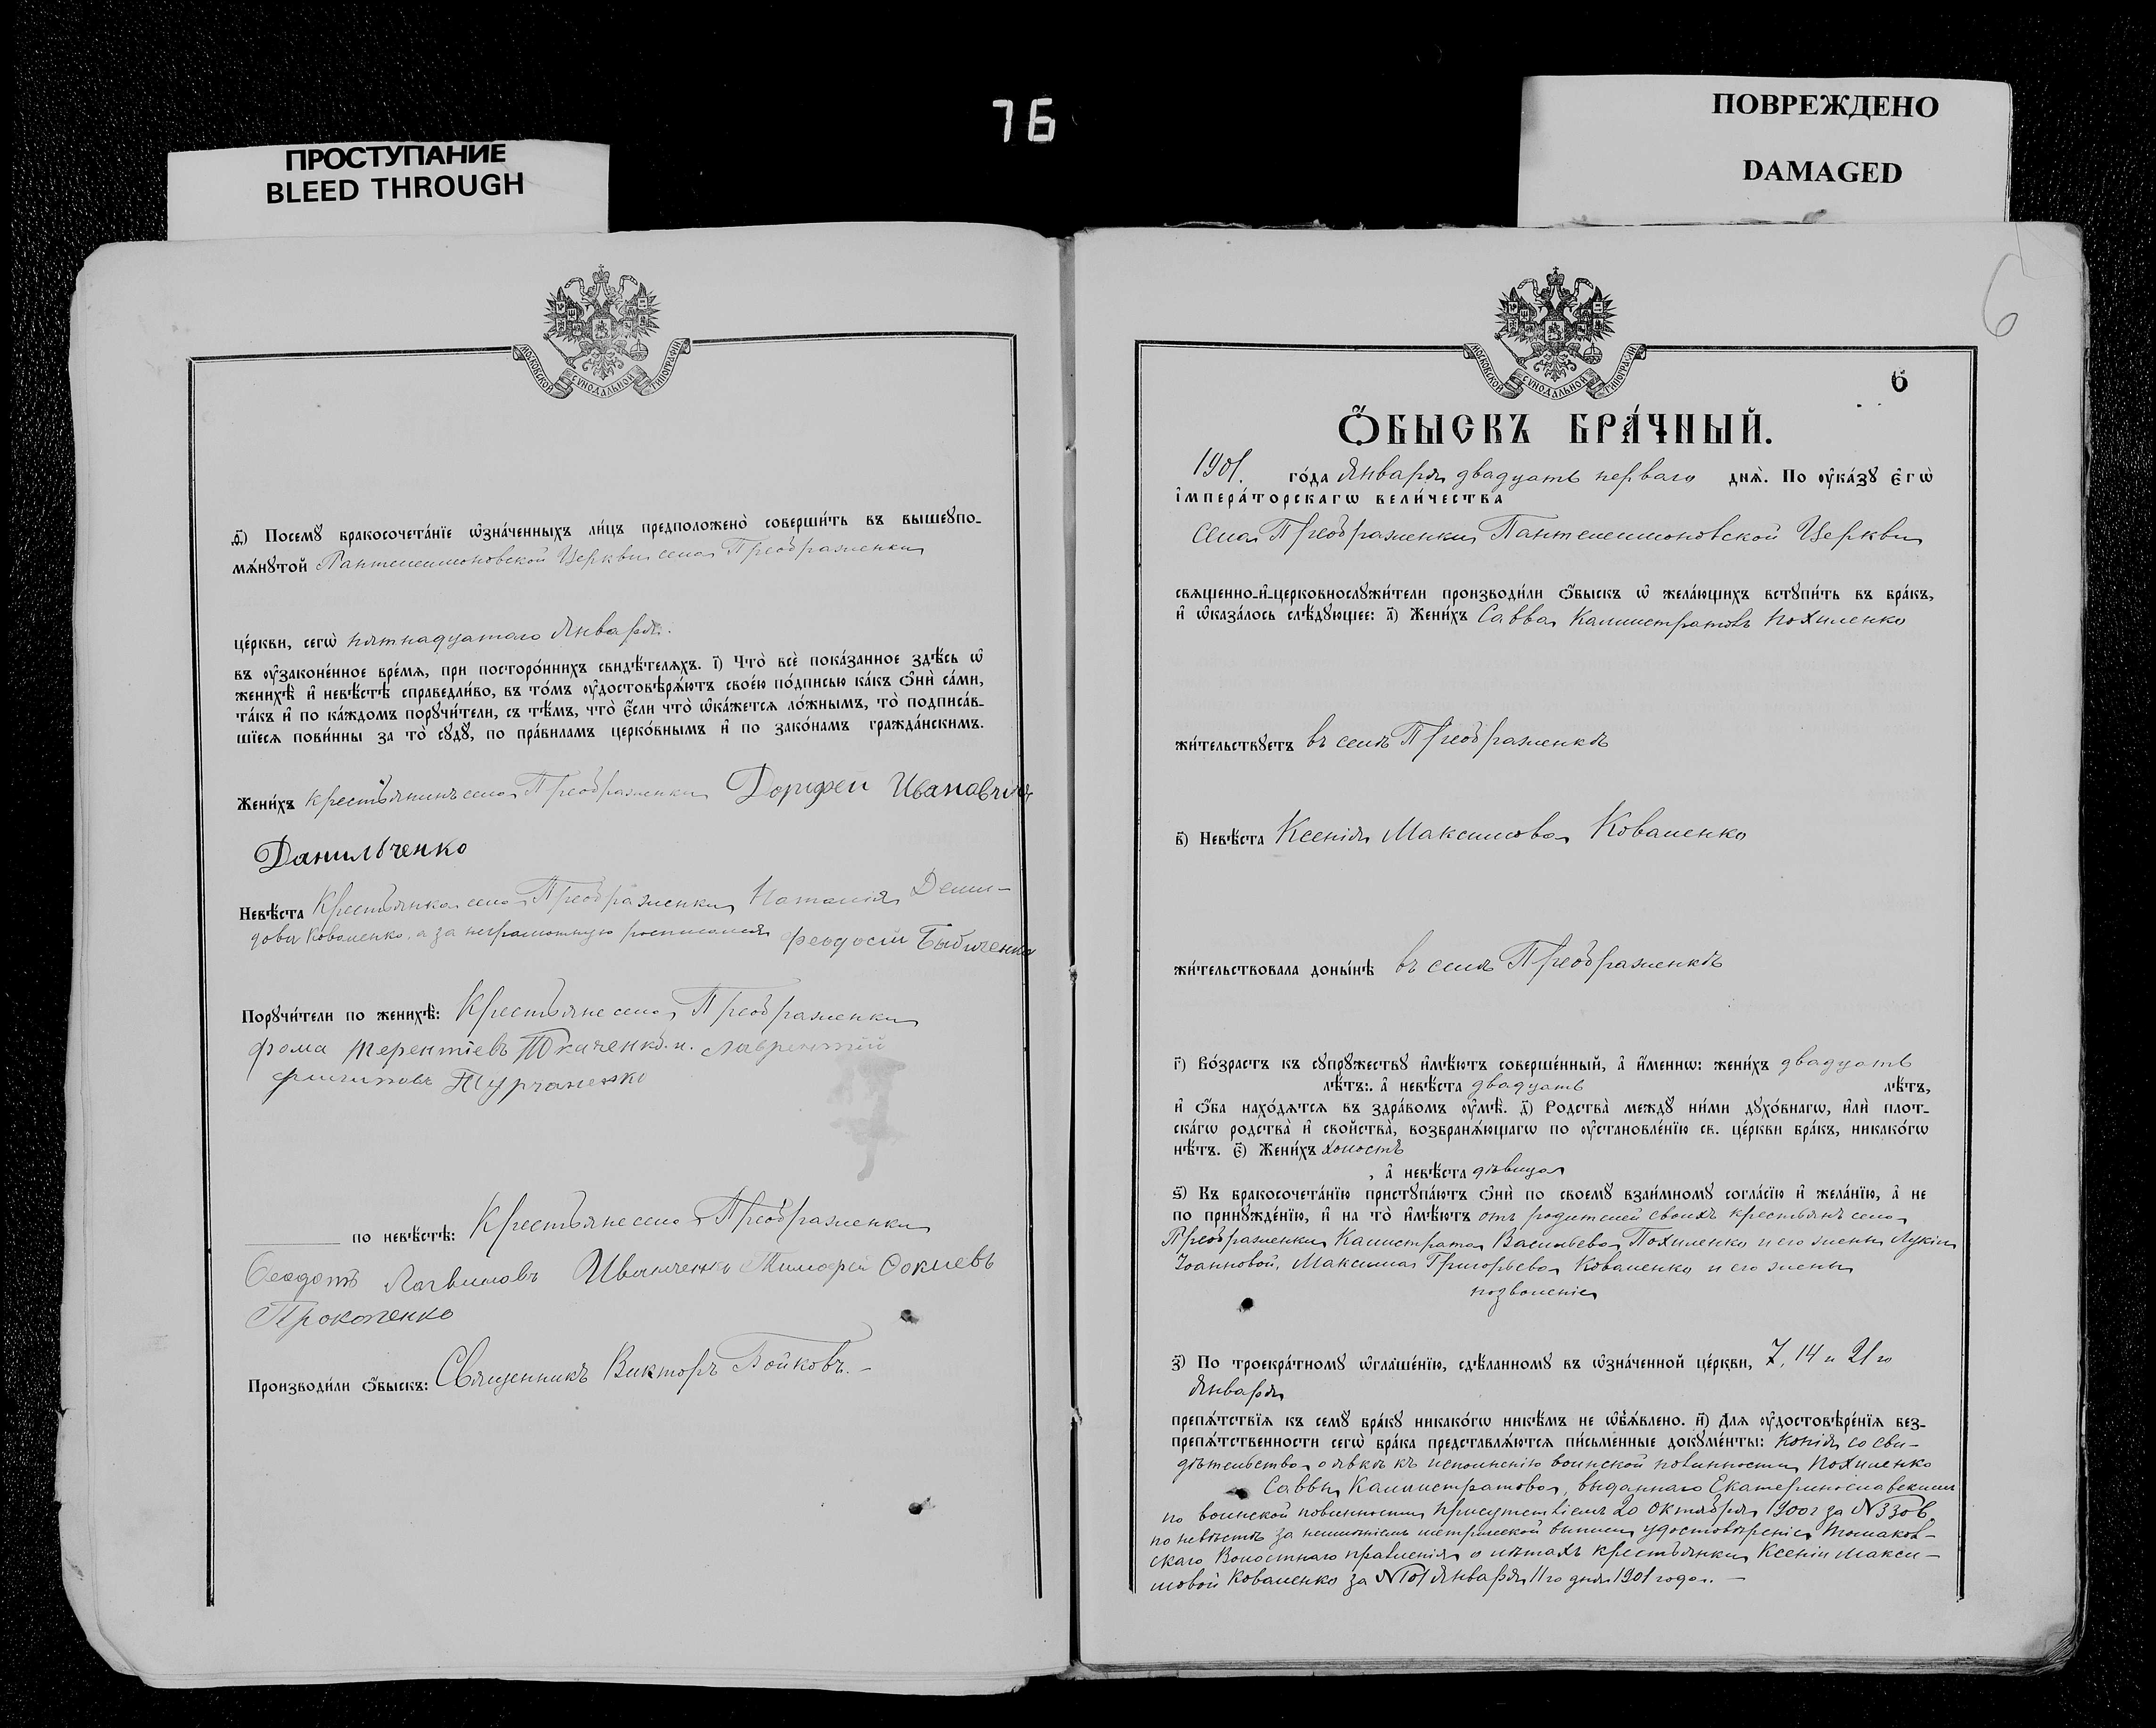 76
ПРОСТУПАНИЕ
BLEED THROUGH
ПОВРЕЖДЕНО
DAMAGED
МОСКОВСКОЙ СѴНОДАЛЬНОЙ ТИПОГРАФІИ
д҃) Посемꙋ бракосочета́нїе ѡзна́ченныхъ ли́цъ предположено̀ соверши́ть въ вышеупо-
мѧ́нꙋтой Пантелеимоновской Церкви села Преображенки
це́ркви, сегѡ̀ пятнадцатаго Января.
въ оу҆законе́нное вре́мѧ, при посторо́ннихъ свидѣ́телѧхъ. і҃) Что̀ всѐ пока́занное здѣ́сь ѡ҆
женихѣ̀ и҆ невѣ́стѣ справедли́во, въ то́мъ оу҆достовѣрѧ́ютъ свое́ю по́дписью ка́къ ѻ҆нѝ са́ми,
та́къ и҆ по ка́ждомъ порꙋчи́тели, съ тѣ́мъ, что̀ є҆́сли что̀ ѡ҆ка́жетсѧ ло́жнымъ, то̀ подписа́в-
шїесѧ пови́нны за то̀ сꙋдꙋ̀, по пра́виламъ церко́внымъ и҆ по зако́намъ гражда́нскимъ.
Жени́хъ крестьянинъ села Преображенки Дорофей Ивановичъ
Данильченко
Невѣ́ста Крестьянка села Преображенки Наталія Деми-
дова Коваленко, а за неграмотную росписался Феодосій
Порꙋчи́тели по женихѣ̀: Крестьяне села Преображенки
Фома Терентіевъ Ткаченко. и. Лаврентій
Филиповъ
по невѣ́стѣ: Крестьяне села Преображенки
Феодотъ Логвиновъ Иванченко Тимофей
Прокопенко
Производи́ли ѻ҆́быскъ: Священникъ Викторъ Бойковъ. –
6
МОСКОВСКОЙ СѴНОДАЛЬНОЙ ТИПОГРАФІИ
6
Ѻ҆́БЫСКЪ БРА́ЧНЫЙ.
1901. го́да Января двадцать перваго днѧ̀. По оу҆ка́зꙋ є҆гѡ̀
і҆мпера́торскагѡ вели́чества
села Преображенки Пантелеимоновской Церкви
свѧщенно-и҆-церковнослꙋжи́тели производи́ли ѻ҆́быскъ ѡ҆ жела́ющихъ встꙋпи́ть въ бра́къ,
и҆ ѡ҆каза́лось слѣ́дꙋющее: а҃) Жени́хъ Савва Калистратовъ Похиленко
жи́тельствꙋетъ въ селѣ Преображенкѣ
в҃) Невѣ́ста Ксенія Максимова Коваленко
жи́тельствовала доны́нѣ въ селѣ Преображенкѣ
г҃) Во́зрастъ къ сꙋпрꙋ́жествꙋ и҆мѣ́ютъ соверше́нный, а҆ и҆́меннѡ: жени́хъ двадцать
лѣ́тъ:. а҆ невѣ́ста двадцать лѣ́тъ,
и҆ ѻ҆́ба нахо́дѧтсѧ въ здра́вомъ оу҆мѣ̀. д҃) Родства̀ междꙋ̀ ни́ми дꙋхо́внагѡ, и҆лѝ плот-
ска́гѡ родства̀ и҆ свойства̀, возбранѧ́ющагѡ по оу҆становле́нїю св. це́ркви бра́къ, никако́гѡ
нѣ́тъ. є҃) Жени́хъ холостъ
, а҆ невѣ́ста дѣвица
ѕ҃) Къ бракосочета́нїю пристꙋпа́ютъ ѻ҆нѝ по своемꙋ̀ взаи́мномꙋ согла́сїю и҆ жела́нїю, а҆ не
по принꙋжде́нїю, и҆ на то̀ и҆мѣ́ютъ отъ родителей своихъ крестьянъ села
Преображенки Калистрата Васильева Похиленко и его жены Лукіи
Іоанновой, Максима Григорьева Коваленко и его жены
позволеніе
з҃) По троекра́тномꙋ ѡ҆глаше́нїю, сдѣ́ланномꙋ въ ѡ҆зна́ченной це́ркви, 7, 14 и 21 го
Января
препѧ́тствїѧ къ семꙋ̀ бра́кꙋ никако́гѡ никѣ́мъ не ѡ҆б̾ѧ́влено. и҃) Длѧ оу҆достовѣре́нїѧ без-
препѧ́тственности сегѡ̀ бра́ка представлѧ́ютсѧ пи́сьменные докꙋме́нты: копія со сви-
дѣтельства о явкѣ къ исполненію воинской повинности Похиленко
Саввы Калистратова, выданнаго Екатеринославскимъ
по воинской повинности присутствіемъ 20 Октября 1900 г за №
по невѣстѣ за неимѣніемъ метрической выписи удостовѣреніе Томаков-
скаго Волостнаго правленія о лѣтахъ крестьянки Ксеніи Макси-
мовой Коваленко за № 101 Января 11 го дня 1901 года. –